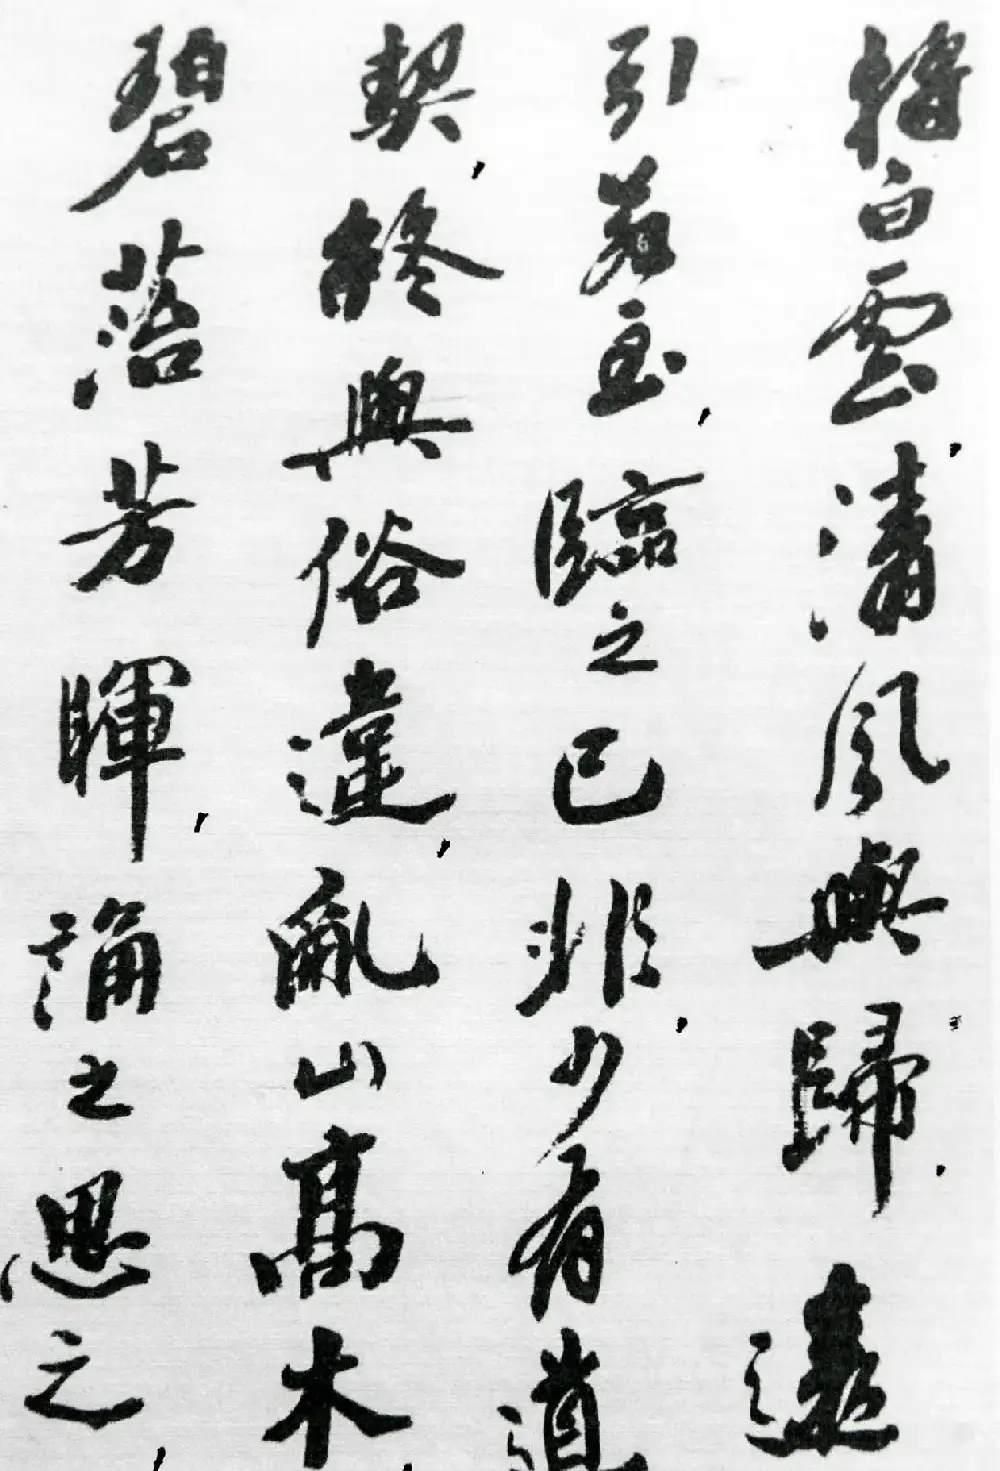 將白雲，清風與歸。遠
引若至，臨之已非，少有道
契，終與俗違，亂山高木，
碧菭芳暉，誦之思之，